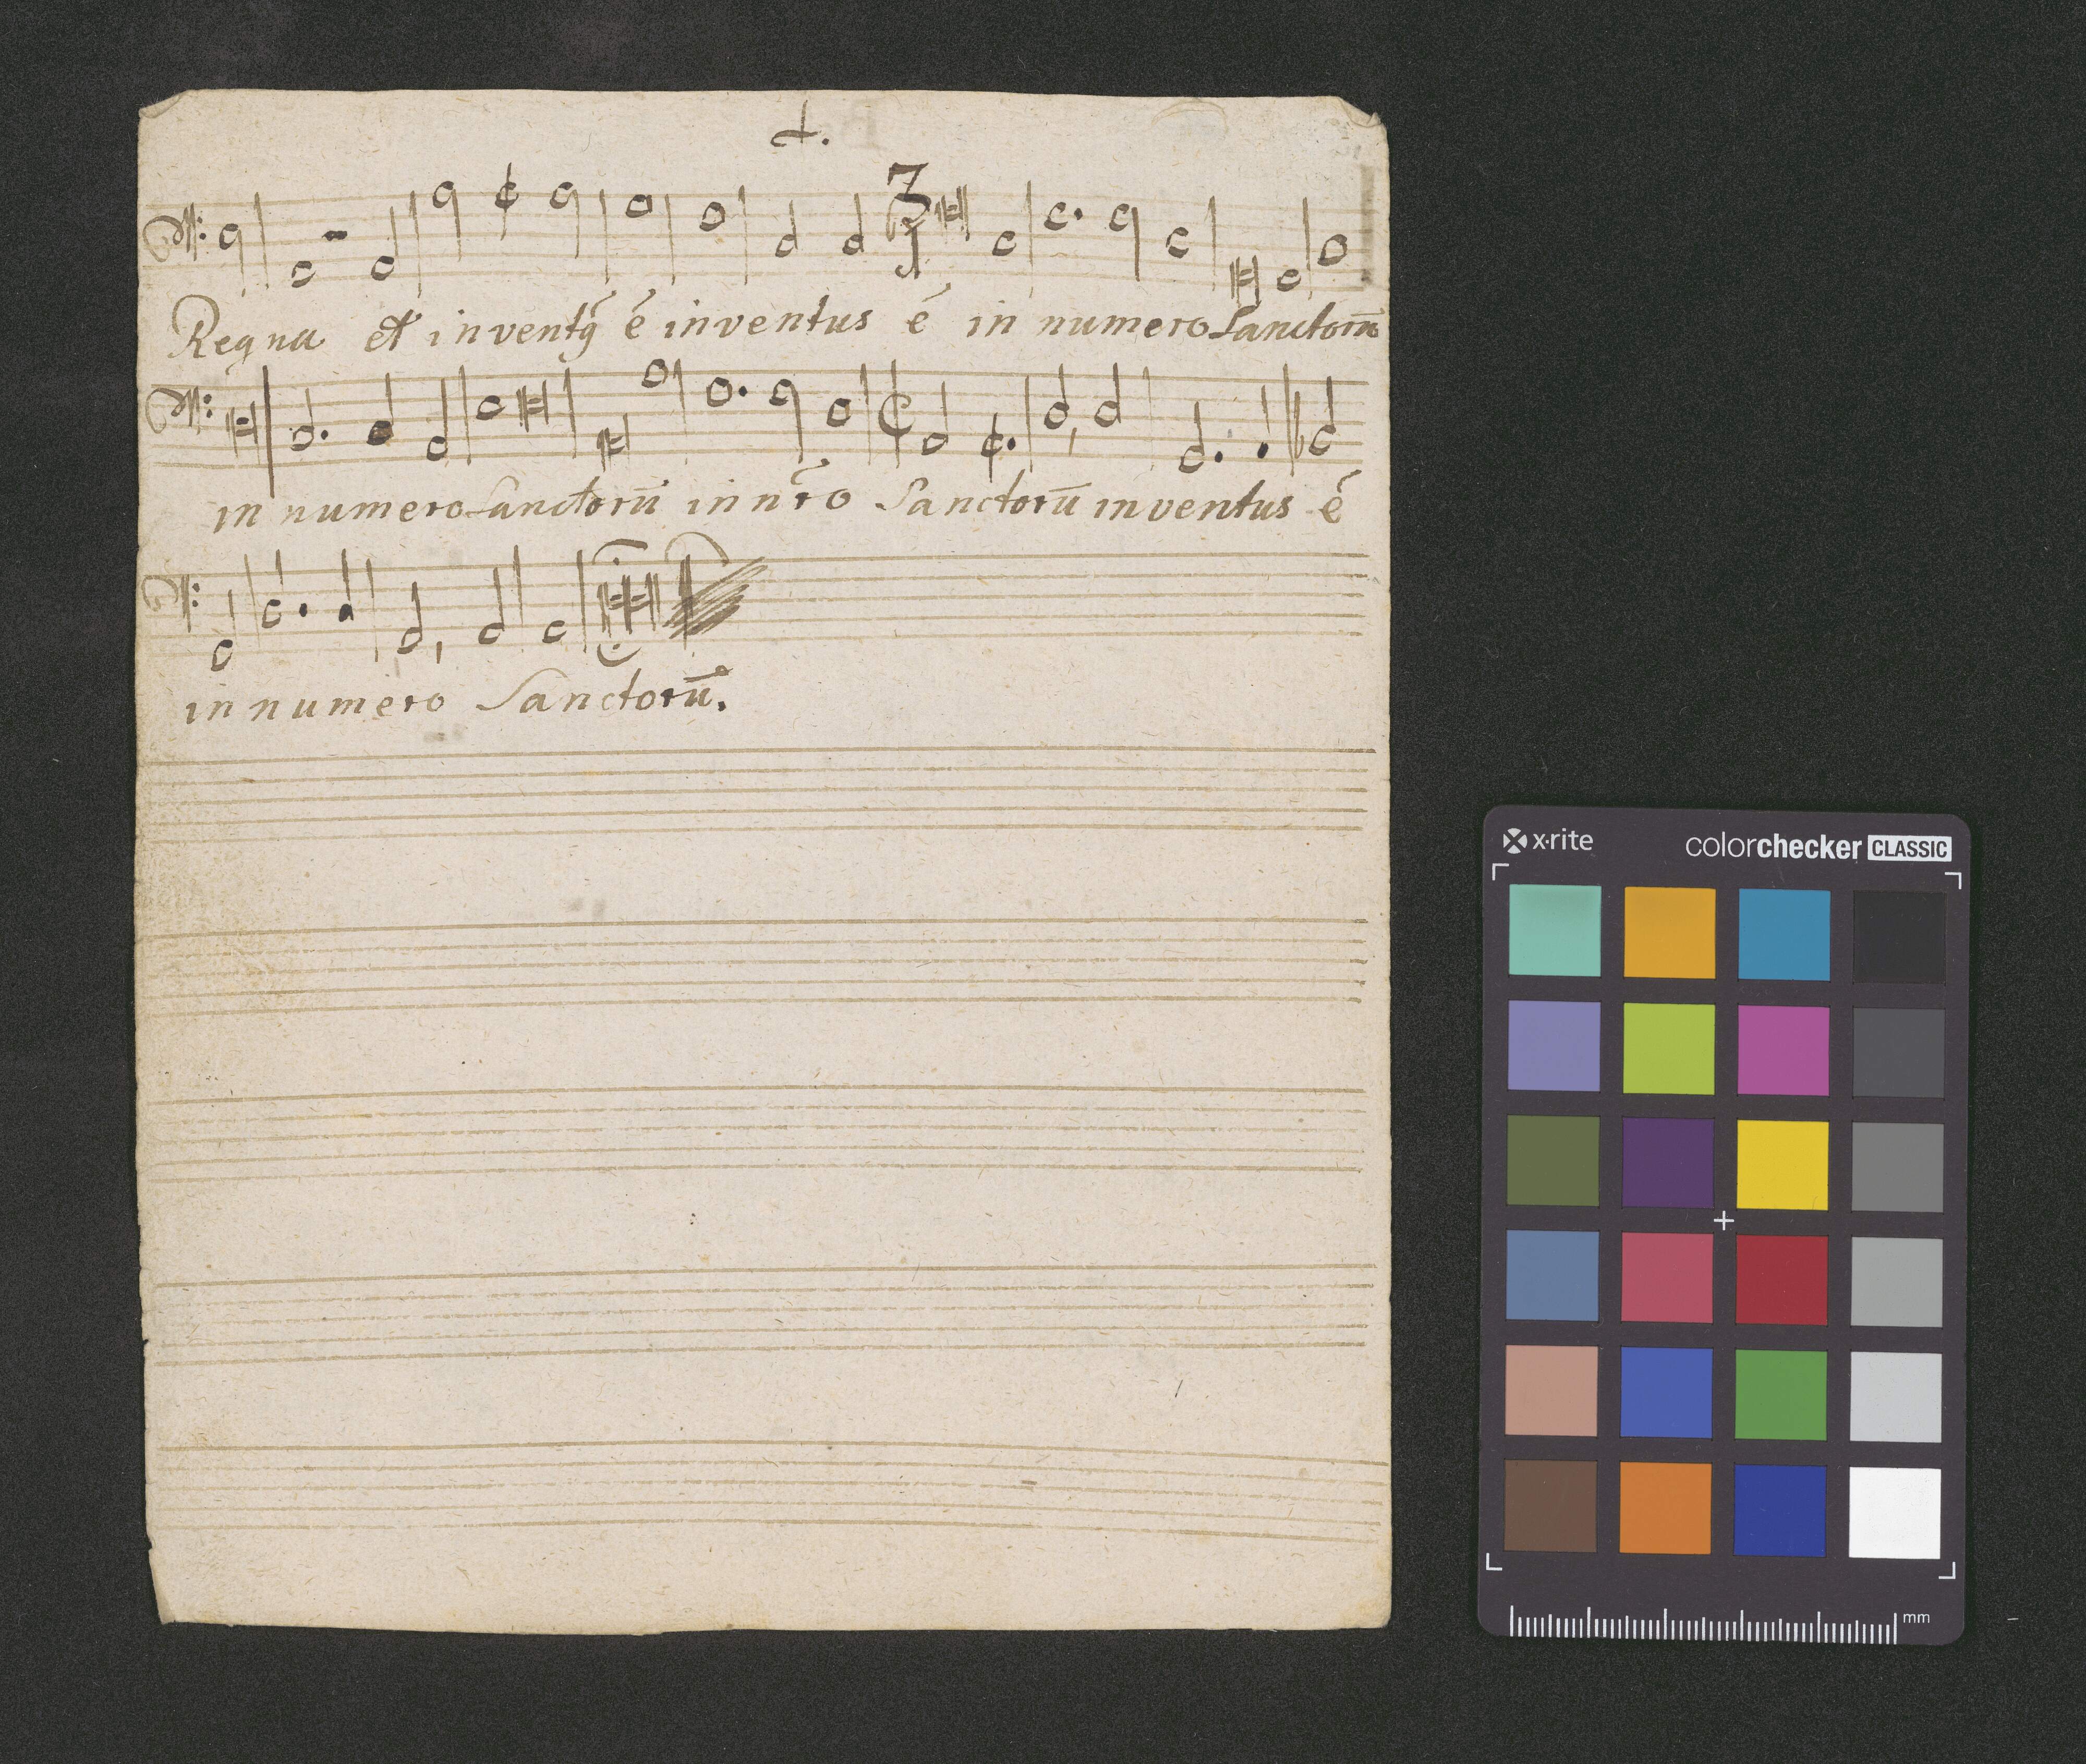 Regna et inventꝰ ē inventus ē in numero Sanctorū
in numero Sanctorū in nr̄o Sanctorū inventus ē
in numero Sanctorū.
x·rite colorchecker CLASSIC
mm